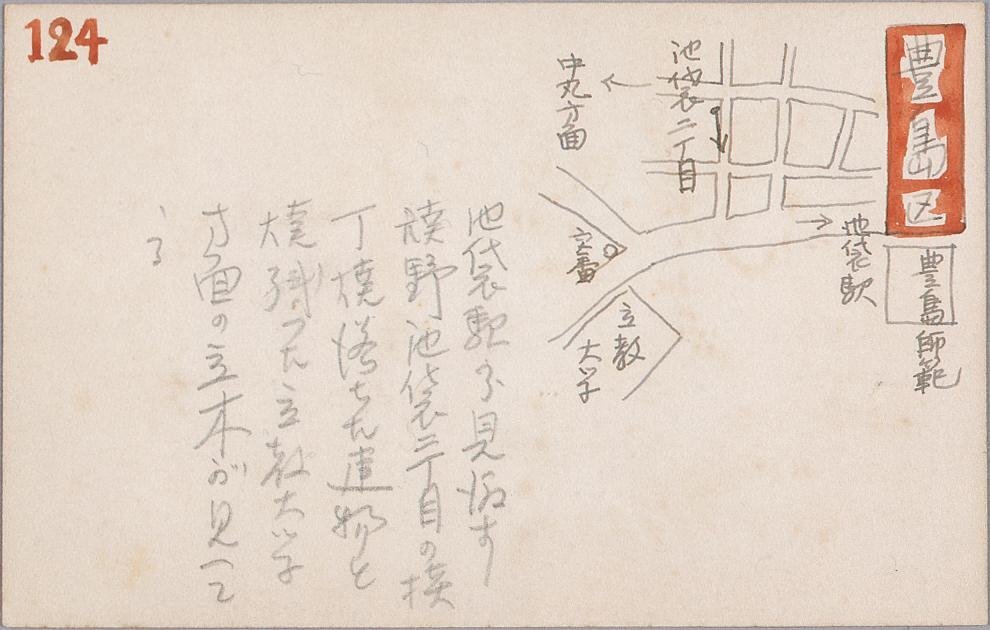 124
豊島区
豊島師範
池袋駅
池袋二丁目
中丸方面
交番
立教
大学
池袋駅から見渡す
焼野池袋二丁目の横
丁焼落ちた建物と
焼残つた立教大学
方面の立木が見えて
いる